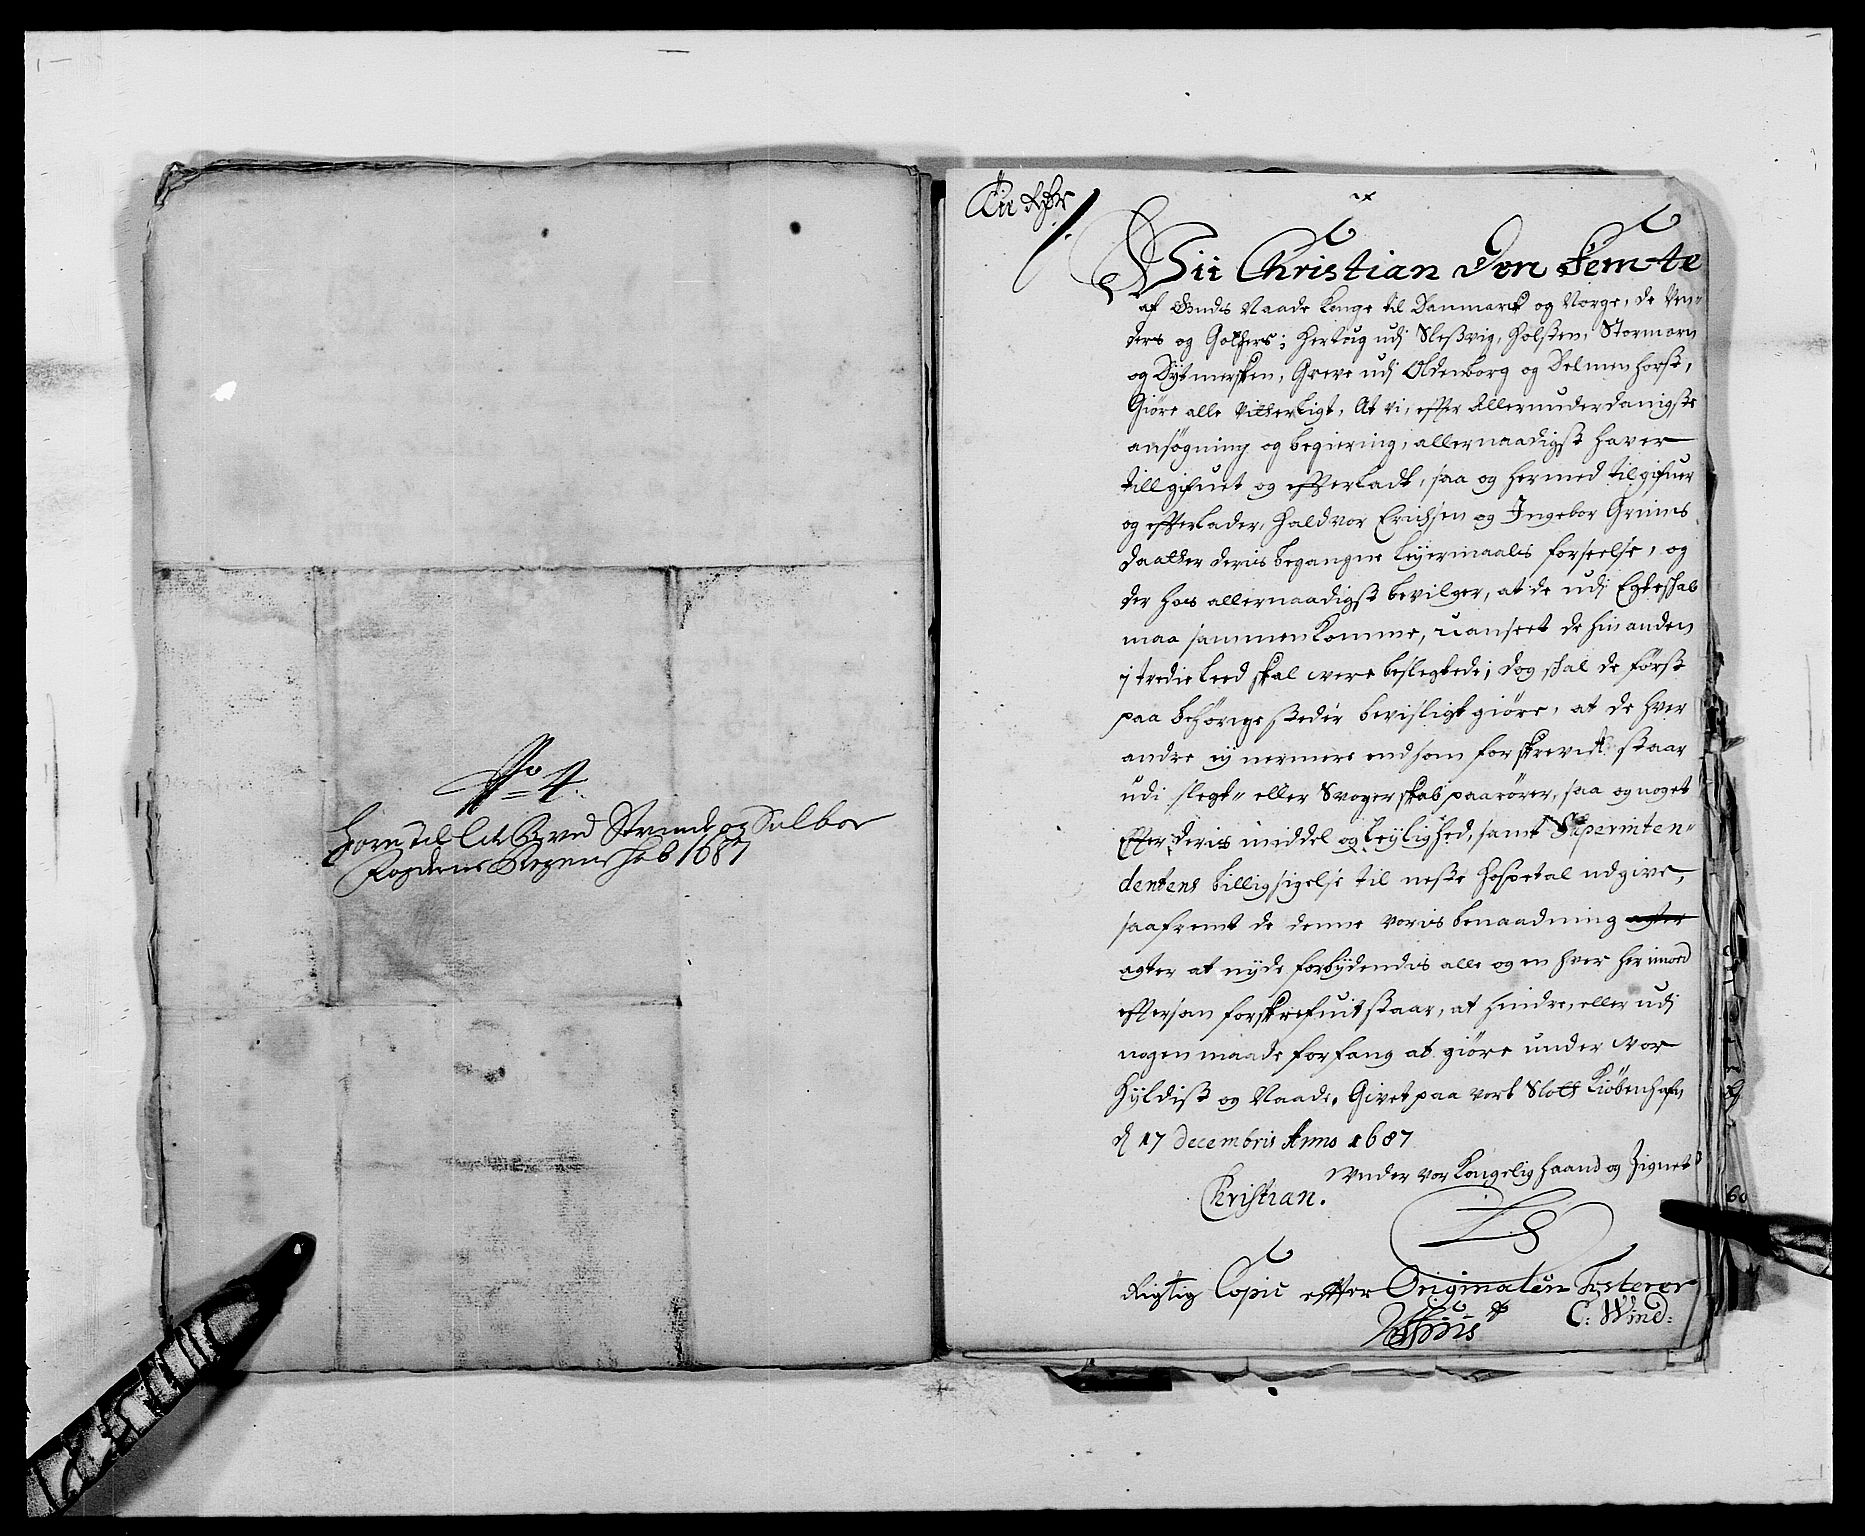 No 4.
Horer til Lit B ved Strinde og Selboe
Fogderies Regenschab 1687
Wii Christian Den Femte
af Guds Naade Konge til Danmark og Norge, de Ven-
ders og Gothers; Hertug udj Sleßvig, Holsten, Stormarn
og Dytmersken, Greve udj Oldenborg og Delmenhorst,
Giøre alle vitherligt, At vi, effter Allerunderdanigste
ansøgning og begiering, allernaadigst haver
tillgifuet og effterladt, saa og hermed tilgifuer
og effterlader, Haldvor Erichsen og Ingebor Grims
daatter deris begangne leyermaals forseelse, og
der hos allernaadigst bevilger, at de udj Egteschab
maa sammenkomme, uanseet de hinanden
j tredie Leed skal were beslegtede; dog schal de først
paa behørige steder bevisligt giøre, at de hver
andre ej nermere end som forskrevit staar
udi slegt- eller Svogerskab paarører, saa og noget
Effter deris middel og leylighed, samt Superinten-
dentens billigsigelse til neste Hospetal udgive,
saafremt de denne voris benaadning agter
agter at nyde forbydendis alle og en hver her imod
eftersom forskrefuit staar, at hindre, eller udj
nogen maade forfang at giøre under vor
Hyldist og Naade, Givet paa vort Slott Kiøbenhafn
d 17 decembris Anno 1687
Under vor Kongelig Haand og Zignet
Christian.
L S
Rigtig Copie effter Originalen Testerer
C: Wind: